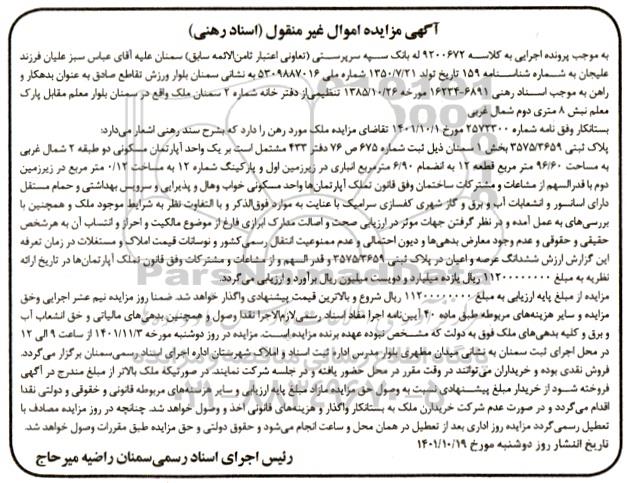 آگهی مزایده اموال غیر منقول (اسناد رهنی)
به موجب پرونده اجرایی به کلاسه ۹۲۰۰۶۷۲ له بانک سپه سرپرستی (تعاونی اعتبار ثامن‌الائمه سابق) سمنان علیه آقای عباس سبز علیان فرزند
علیجان به شماره شناسنامه ۱۵۹ تاریخ تولد ۱۳۵۰/۷/۲۱ شماره ملی ۵۳۰۹۸۸۷۰۱۶ به نشانی سمنان بلوار ورزش تقاطع صادق به عنوان بدهکار و
راهن به موجب اسناد رهنی ۶۸۹۱-۱۶۲۳۴ مورخه ۱۳۸۵/۱۰/۲۶ تنظیمی از دفتر خانه شماره ۲ سمنان ملک واقع در سمنان بلوار معلم مقابل پارک
معلم نبش ۸ متری دوم شمال غربی
بستانکار وفق نامه شماره ۲۵۷۲۳۰۰ مورخ ۱۴۰۱/۱۰/۱ تقاضای مزایده ملک مورد رهن را دارد که بشرح سند رهنی اشعار می‌دارد:
پلاک ثبتی ۳۵۷۵/۳۶۵۹ بخش ۱ سمنان ذیل ثبت شماره ۶۷۵ ص ۷۶ دفتر ۴۳۳ مشتمل است بر یک واحد آپارتمان مسکونی دو طبقه ۲ شمال غربی
به مساحت ۹۶/۶۰ متر مربع قطعه ۱۲ به انضمام ۶/۹۰ مترمربع انباری در زیرزمین اول و پارکینگ شماره ۱۲ به مساخت ۰/۱۲ متر مربع در زیرزمین
دوم با قدرالسهم از مشاعات و مشترکات ساختمان وفق قانون تملک آپارتمان‌ها واحد مسکونی خواب وهال و پذیرایی و سرویس بهداشتی و حمام مستقل
دارای اسانسور و انشعابات آب و برق و گاز شهری کفسازی سرامیک با عنایت به موارد فوق‌الذکر و با التفاوت نظر به شرایط موجود ملک و همچنین با
بررسی‌های به عمل آمده و در نظر گرفتن جهات موثر در ارزیابی صحت و اصالت مدارک ابرازی فارغ از موضوع مالکیت و احراز و انتساب آن به هرشخص
حقیقی و حقوقی و عدم وجود معارض بدهی‌ها و دیون احتمالی و عدم ممنوعیت انتقال رسمی کشور و نوسانات قیمت املاک و مستغلات در زمان تعرفه
این گزارش ارزش ششدانگ عرصه و اعیان در پلاک ثبتی ۳۵۷۵/۳۶۵۹ و قدر السهم و از مشاعات و مشترکات وفق قانون تملک آپارتمان‌ها در تاریخ ارائه
نظریه به مبلغ ۱۱۲۰۰۰۰۰۰۰۰ ریال یازده میلیارد و دویست میلیون ریال برآورد و ارزیابی می‌گردد.
مزایده از مبلغ پایه ارزیابی به مبلغ ۱۱۲۰۰۰۰۰۰۰۰ ریال شروع و بالاترین قیمت پیشنهادی واگذار خواهد شد. ضمنا روز مزایده نیم عشر اجرایی وحق
مزایده و سایر هزینه‌های مربوطه طبق ماده ۴۰ آیین‌نامه اجرا مفاد اسناد رسمی لازم‌الاجرا نقدا وصول و همچنین بدهی‌های مالیاتی و حق انشعاب آب
و برق و کلیه بدهی‌های ملک فوق به دولت که مشخص نبوده عهده برنده مزایده است. مزایده در روز دوشنبه مورخه ۱۴۰۱/۱۱/۳ از ساعت ۹ الی ۱۲
در محل اجرای ثبت سمنان به نشانی میدان مطهری بلوار مدرس اداره ثبت اسناد و املاک شهرستان اداره اجرای اسناد رسمی سمنان برگزار می‌گردد.
فروش نقدی بوده و خریداران می‌توانند در وقت مقرر در محل حضور یافته و در جلسه شرکت نمایند. در صورتیکه ملک بالاتر از مبلغ مندرج در آگهی
فروخته شود از خریدار مبلغ پیشنهادی نسبت به وصول حق مزایده مازاد مبلغ پایه ارزیابی و سایر هزینه‌های مربوطه قانونی و حقوقی و دولتی نقدا
اقدام می‌گردد و در صورت عدم شرکت خریدارن ملک به بستانکار واگذار و هزینه‌های قانونی اخذ و وصول خواهد شد. چنانچه در روز مزایده مصادف با
تعطیل رسمی گردد مزایده روز اداری بعد از تعطیل در همان محل و ساعت انجام می‌شود و حقوق دولتی و حق مزایده طبق مقررات وصول خواهد شد.
تاریخ انتشار روز دوشنبه مورخ ۱۴۰۱/۱۰/۱۹
رئیس اجرای اسناد رسمی سمنان راضیه میرحاج